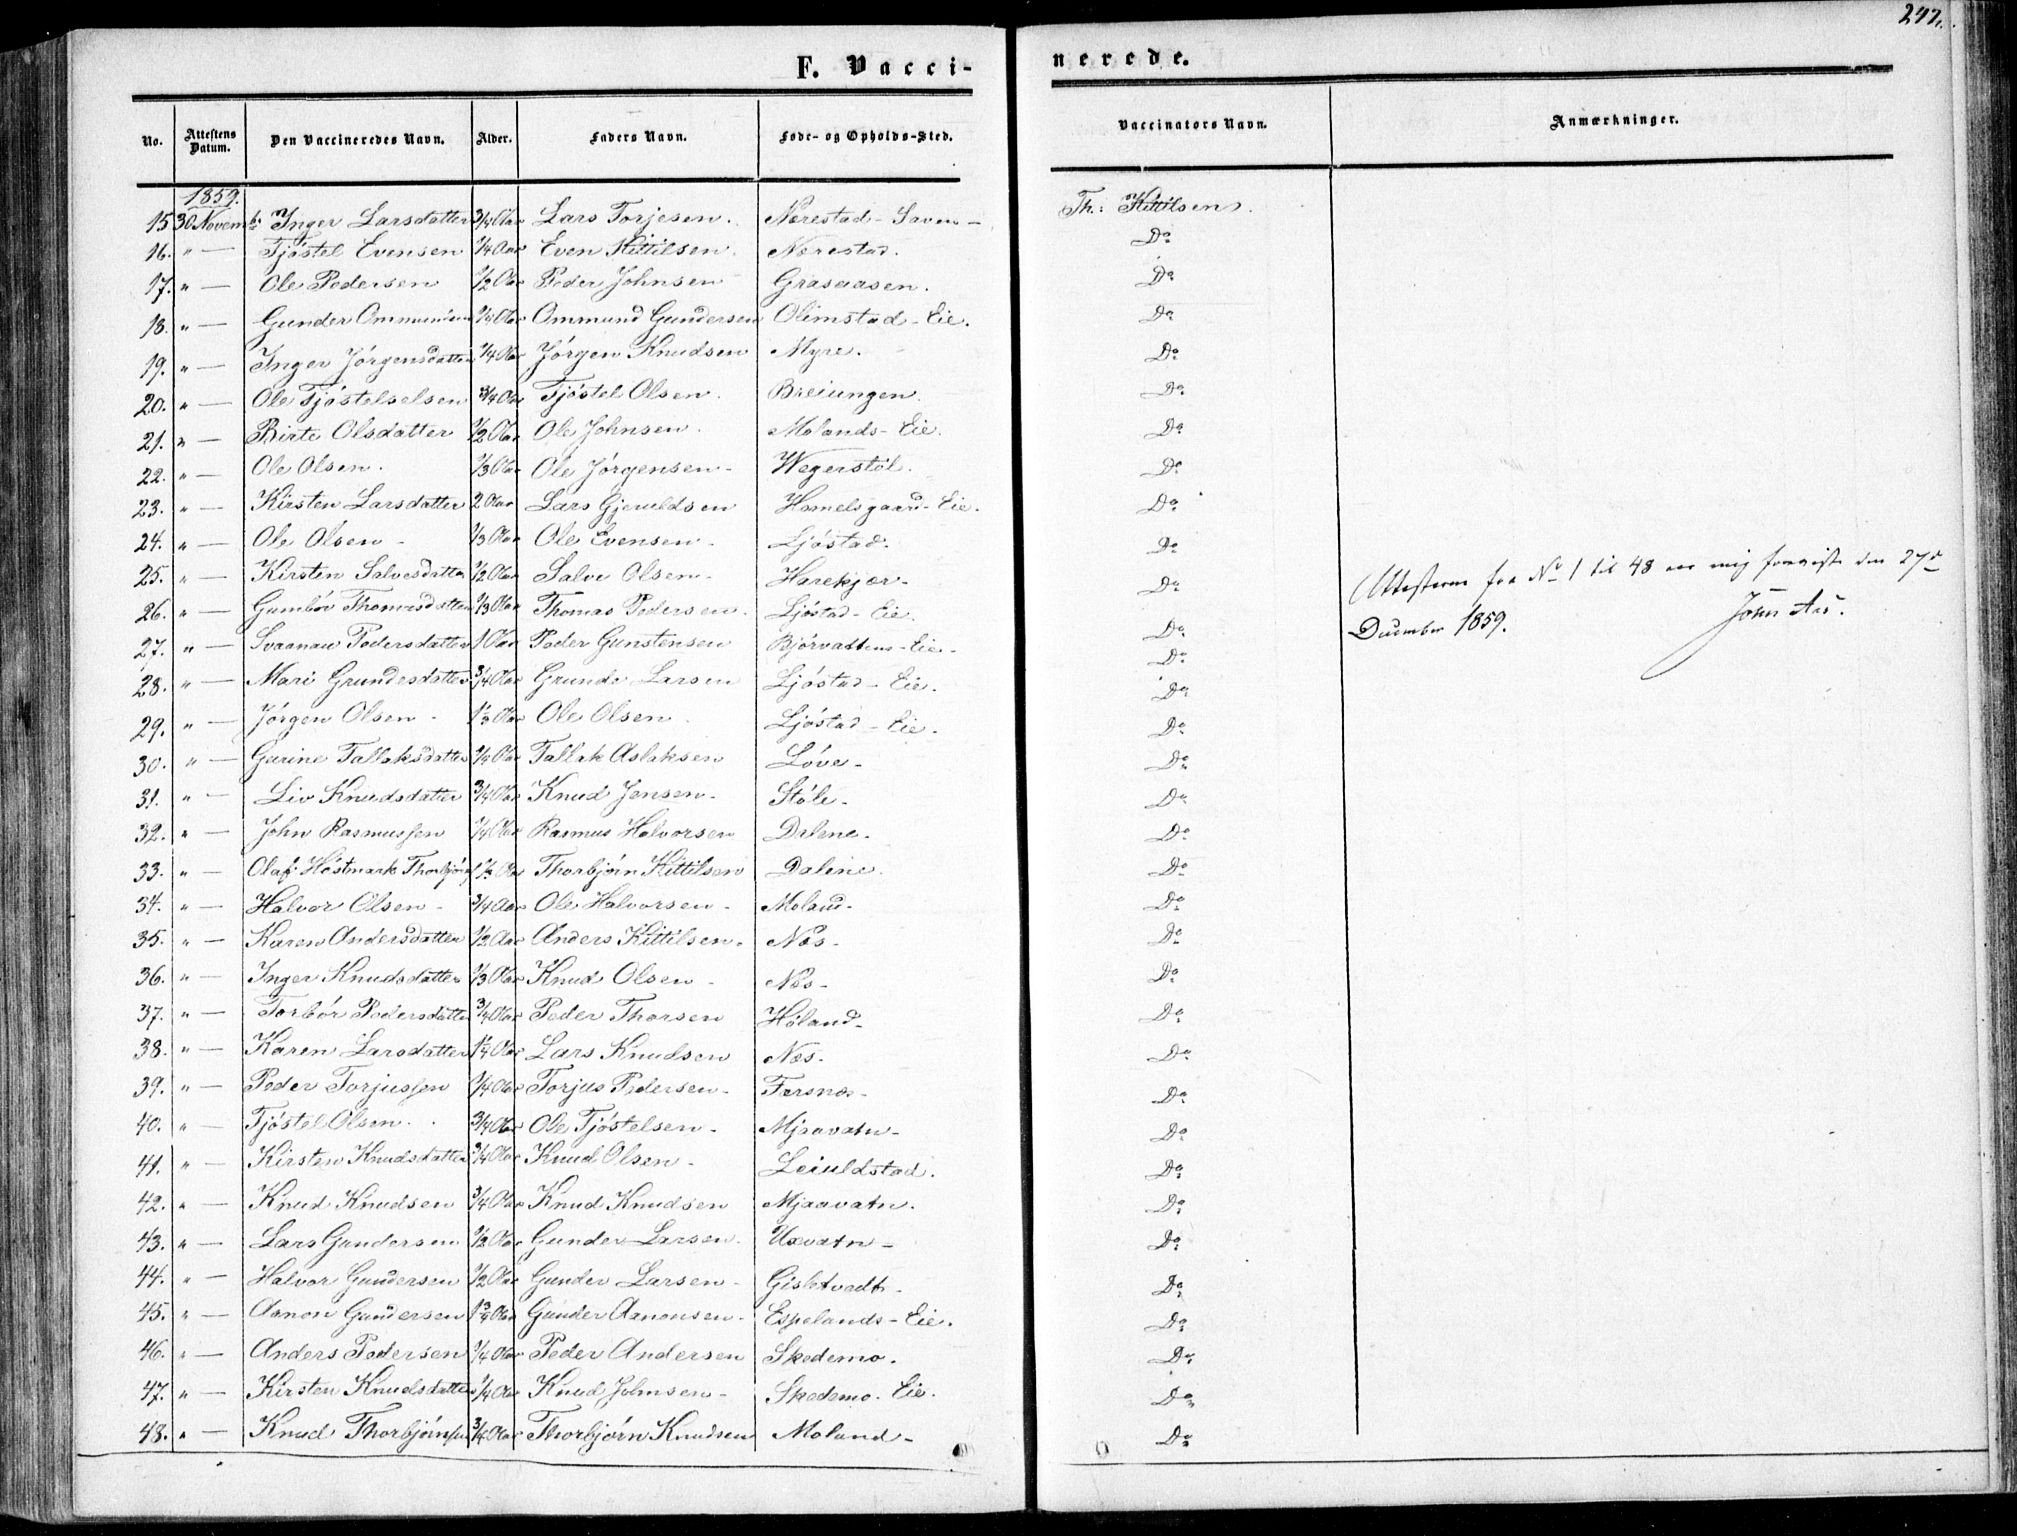 247.
F. Vacci-
nerede.
No. Attestens Datum. Den Vaccineredes Navn. Alder. Faders Navn. Føde- og Opholds-Sted. Vaccinators Navn. Anmærkninger.
1859.
15 30 Novembr Inger Larsdatter 3/4 Aar Lars Torjesen. Nærestad - Saven - Th: Kittilsen.
16. " — Tjöstel Evensen 1/4 Aar Even Kittilsen. Nærestad. Do
17. " — Ole Pedersen 1/2 Aar Peder Johnsen Grasaasen. Do
18. " — Gunder Ommundsen 1/4 Aar Ommund Gundersen Olimstad - Eie. Do
19. " — Inger Jörgensdatter 1/4 Aar Jörgen Knudsen Myre. Do
20. " — Ole Tjöstelsen 3/4 Aar Tjöstel Olsen. Breiungen. Do
21. " — Birte Olsdatter 1/2 Aar Ole Johnsen. Molands - Eie. Do
22. " — Ole Olsen. 1/3 Aar Ole Jörgensen - Wegerstöl. Do
23. " — Kirsten Larsdatter 2 Aar Lars Gjeruldsen Homelsgaard - Eie. Do
24. " — Ole Olsen - 1/3 Aar Ole Evensen - Ljöstad. Do
25. " — Kirsten Salvesdatter 1/2 Aar Salve Olsen - Harekjær - Do
26. " — Gumbör Thomasdatter 1/3 Aar Thomas Pedersen. Ljöstad - Eie. Do
27. " — Svaanau Pedersdatter 1 Aar Peder Gunstensen Björvattens - Eie - Do
28. " — Mari Grundesdatter 3/4 Aar Grunde Larsen Ljöstad - Eie. Do
29. " — Jörgen Olsen - 1 1/2 Aar Ole Olsen. Ljöstad - Eie. Do
30. " — Gurine Tallaksdatter 1/4 Aar Tallak Aslaksen Löve - Do
31. " — Liv Knudsdatter 3/4 Aar Knud Jensen - Støle - Do
32. " — John Rasmussen 1/4 Aar Rasmus Halvorsen Dalene - Do
33. " — Olaf Höstmark Thorbjörns 1 1/2 Aar Thorbjörn Kittilsen Dalene. Do
34. " — Halvor Olsen - 3/4 Aar Ole Halvorsen - Moland - Do
35. " — Karen Andersdatter 1/2 Aar Anders Kittilsen - Næs - Do
36. " — Inger Knudsdatter 1/3 Aar Knud Olsen - Næs - Do
37. " — Torbör Pedersdatter 3/4 Aar Peder Thorsen Höland - Do
38. " — Karen Larsdatter 1 1/4 Aar Lars Knudsen Næs. Do
39. " — Peder Torjussen 1/4 Aar Torjus Pedersen - Farsnæs - Do
40. " — Tjöstel Olsen. 3/4 Aar Ole Tjöstelsen - Mjaavatn - Do
41. " — Kirsten Knudsdatter 3/4 Aar Knud Olsen - Leiuldstad. Do
42. " — Knud Knudsen 3/4 Aar Knud Knudsen Mjaavatn. Do
43. " — Lars Gundersen 1/2 Aar Gunder Larsen. Uxvatn - Do
44. " — Halvor Gundersen 1/2 Aar Gunder Larsen - Do
45. " — Aanon Gundersen 1 3/4 Aar Gunder Aanonsen - Espelands - Eie. Do
46. " — Anders Pedersen 1/4 Aar Peder Andersen Skedemo. Do
47. " — Kirsten Knudsdatter 1/4 Aar Knud Johnsen - Skedemo. Eie. Do
48. " — Knud Thorbjörnsen 3/4 Aar Thorbjörn Knudsen Moland - Do
Attesterne fra No 1 til 48 ere mig foreviste den 27de
December 1859.